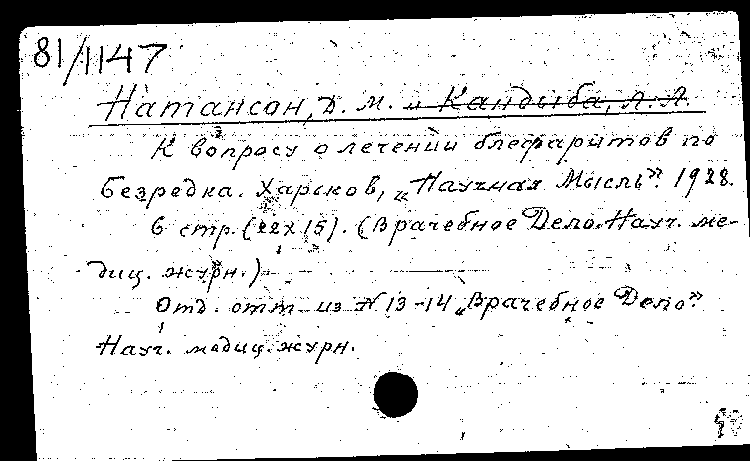 81/1147
Натансон, Д. М. и Кандыба, Л. Л.
К вопросу о лечении блефаритов по
Безредка. Харьков, „Научная Мысль". 1928.
6 стр. (22х15). (Врачебное Дело. Науч. ме-
диц. журн.)
Отд. отт. из N 13-14 „Врачебное Дело".
Науч. медиц. журн.